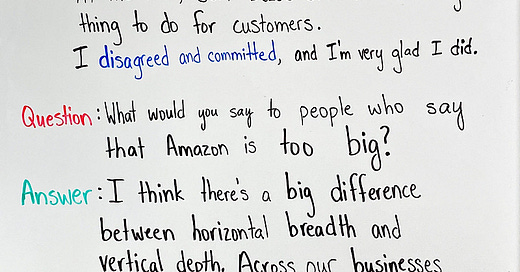 thing to do for customers.
I disagreed and committed, and I'm very glad I did.
Question: What would you say to people who say
that Amazon is too big?
Answer: I think there's a big difference
between horizontal breadth and
vertical depth. Across our businesses